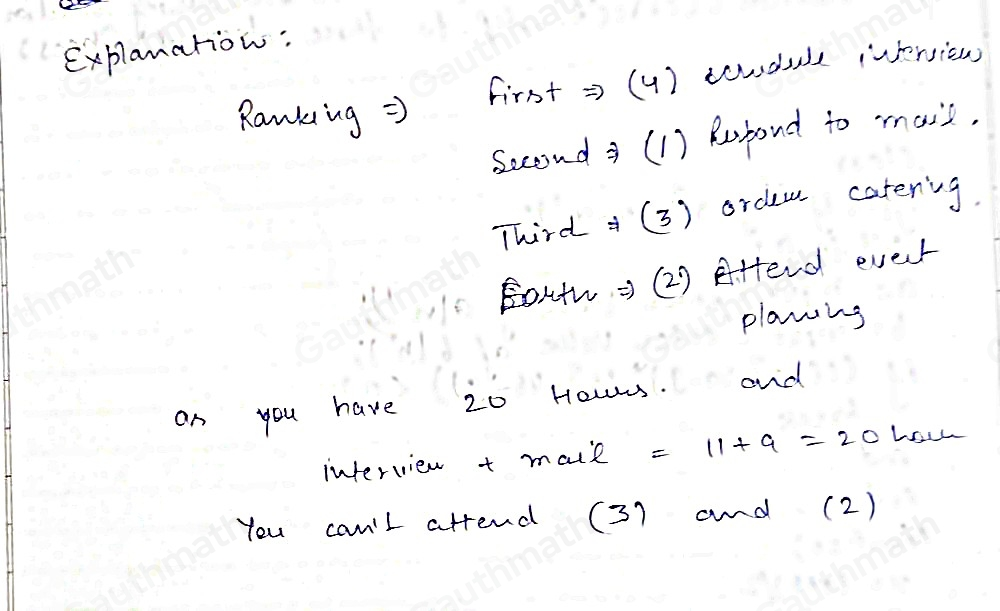 Explanation:
Ranking ⇒ First ⇒ (4) schedule interview
Second ⇒ (1) Respond to mail.
Third ⇒ (3) order catering.
Forth ⇒ (2) Attend event
planning
as you have 20 Hours. and
interview + mail = 11 + 9 = 20 hour
You can't attend (3) and (2)
Gauthmath